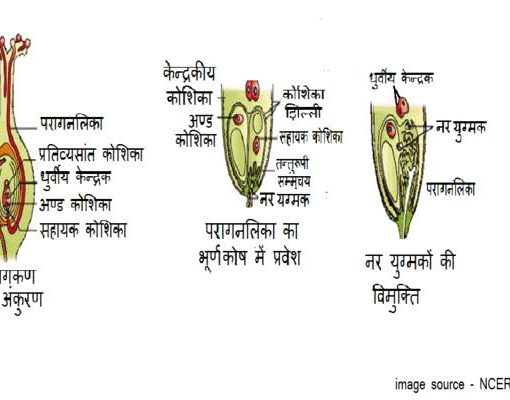 परागनलिका
प्रतिव्यसांत कोशिका
धुर्वीय केन्द्रक
अण्ड कोशिका
सहायक कोशिका
अंकुरण
केन्द्रकीय
कोशिका
अण्ड
कोशिका
कोशिका
झिल्ली
सहायक कोशिका
तन्तुरुपी
सम्मुचय
नर युग्मक
परागनलिका का
भूर्णकोष में प्रवेश
धुर्वीय केन्द्रक
नर युग्मक
परागनलिका
नर युग्मकों की
विमुक्ति
image source - NCER